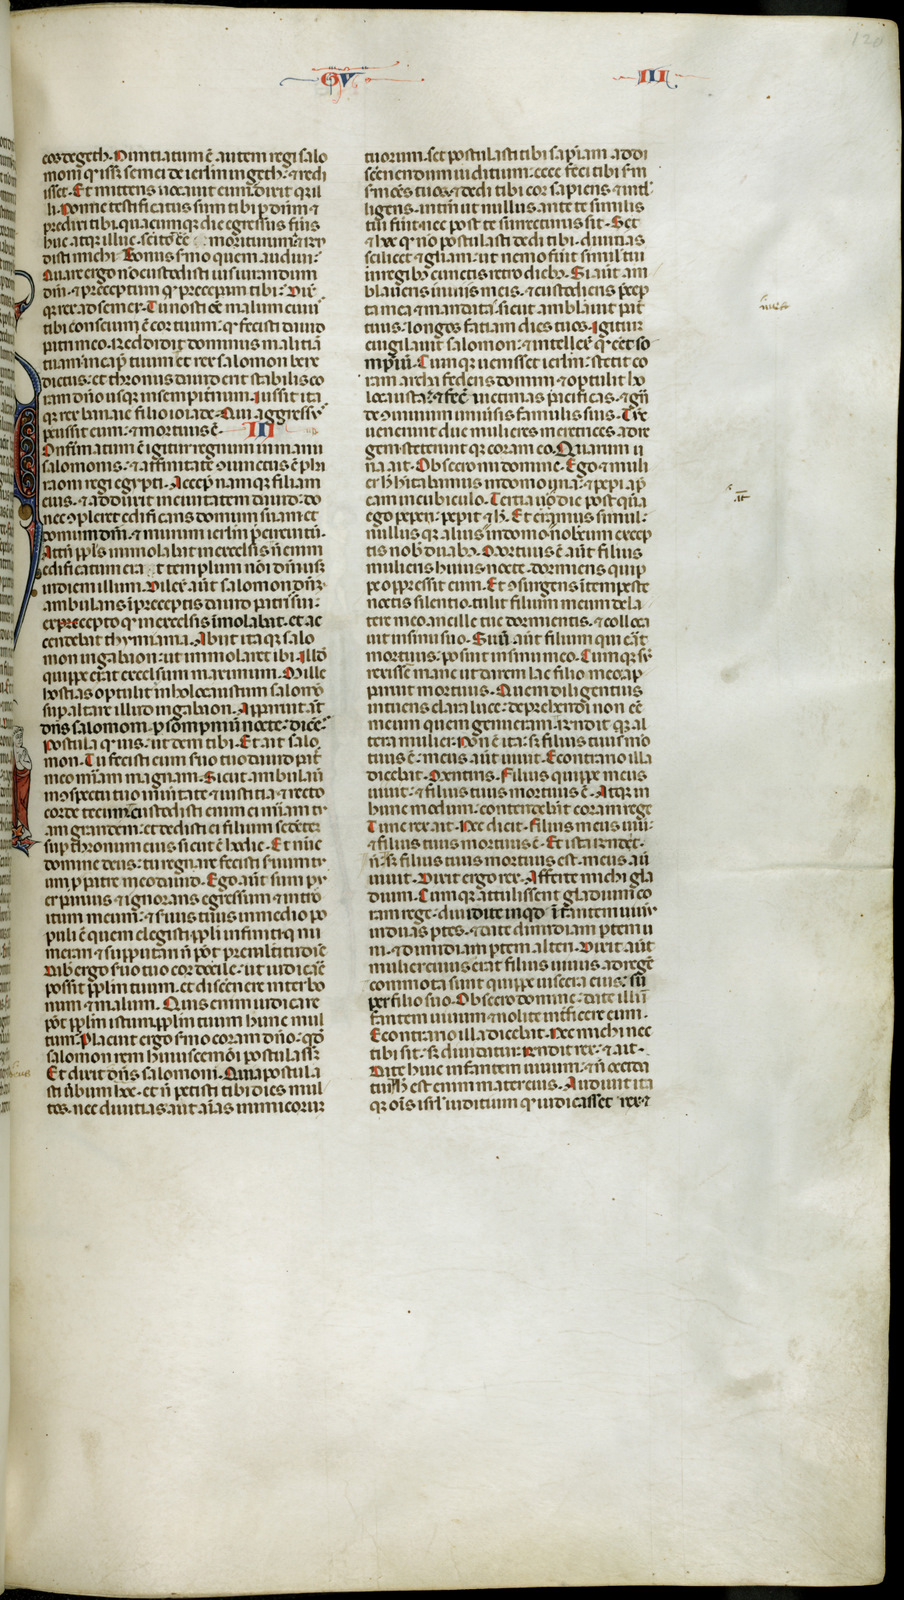 GV III
120
eos de geth. Nuntiatum ē autem regi salo
moni q isset semei de ierłm in geth. et redi
isset. Et mittens uocauit eum. dixit q; il
li. Nonne testificatus sum tibi p dnm et
predixi tibi. quacumq; die egressus fueris
huc atq; illuc. scito te ēē moriturum. et rn
disti michi. Bonus sermo quem audiui.
Quare ergo n custodisti iusiurandum
dni. et preceptum q preceperam tibi. Dix
q; rex ad semei. Tu nosti ōē malum cuius
tibi conscium ē cor tuum. q fecisti dauid
patri meo. Reddidit dominus malitiā
tuam in cap tuum et rex salomon bene
dictus. et thronus dauid erit stabilis co
ram dno usq; in sempiternum. Iussit ita
q; rex banaie filio ioiade. Qui aggressus
percussit eum. et mortuus ē. III
Confirmatum ē igitur regnum in manu
salomonis. et affinitate coniunctus ē pha
raoni regi egypti. Accepit namq; filiam
eius. et adduxit in ciuitatem dauid. do
nec compleret edificans domum suam et
domum dni. et murum ierłm per circuitū.
Attn ppls immolabat in excelsis n enim
edificatum erat templum noi dni usq;
in diem illum. Dilexit aut salomon dnm
ambulans in preceptis dauid patris sui.
excepto q in excelsis immolabat. et ac
cendebat thymiama. Abiit itaq; salo
mon in gabaon. ut immolaret ibi. Illd
quippe erat excelsum maximum. Mille
hostias optulit in holocaustum salomon
sup altare illud in gabaon. Apparuit aut
dns salomoni p sompnium nocte. dicēs.
Postula q uis. ut dem tibi. Et ait salo
mon. Tu fecisti cum suo tuo dauid patre
meo miam magnam. Sicut ambulauit
in conspectu tuo in ueritate et iustitia. et recto
corde tecum. custodisti enim ei miam tu
am grandem. et dedisti ei filium sedentem
sup thronum eius sicut ē hodie. Et nūc
domine deus. tu regnare fecisti seruum tu
um p patre meo dauid. Ego aut sum pu
er paruus. et ignorans egressum et intro
itum meum. et seruus tuus in medio po
puli ē quem elegisti. ppli infiniti q nu
merari et supputari n pot pre multitudine
Dabis ergo seruo tuo cor docile. ut iudicare
possit pplm tuum. et discernere inter bo
num et malum. Quis enim iudicare
pot pplm istum. pplm tuum hunc mul
tum. Placuit ergo sermo coram dno. qd
salomon rem huiuscemodi postulasset
Et dixit dns salomoni. Quia postula
sti ubum hoc. et n petisti tibi dies mul
tos. nec diuitias aut aias inimicorum
tuorum. set postulasti tibi sapiam ad di
scernendum iuditium. ecce feci tibi s m
sermones tuos. et dedi tibi cor sapiens et intel
ligens. intm ut nullus ante te similis
tui fuit nec post te surrecturus sit. Set
et hec q no postulasti dedi tibi. diuitias
scilicet et gliam. ut nemo fuit similis tui
in regibus cunctis retro diebus. Si aut am
blaueris in uiis meis. et custodieris precep
ta mea et mandata sicut amblauit pat
tuus. longos faciam dies tuos. Igitur
euigilauit salomon. et intellexit q eēt so
mpniū. Cumq; uenisset ierłm. stetit co
ram archa federis domini. et optulit ho
locausta. et fecit uictimas pacificas. et gn
de conuiuium uniuersis famulis suis. Tunc
uenerunt due mulieres meretrices ad re
gem. steterunt q; coram eo. Quarum u
na ait. Obsecro mi domine. Ego et muli
er hec habitabamus in domo una. et peperi ap
eam in cubiculo. Tertia uo die post quā
ego peperi. peperit et hec. Et eramus simul.
nullus q; alius in domo nobiscum excep
tis nobis duabus. Mortuus ē aut filius
mulieris huius nocte. dormiens quip
pe oppressit eum. Et consurgens intempeste
noctis silentio. tulit filium meum de la
tere meo ancille tue dormientis. et colloca
uit in sinu suo. Suū aut filium qui erat
mortuus. posuit in sinu meo. Cumq; sur
rexissem mane ut darem lac filio meo. ap
paruit mortuus. Quem diligentius
intuens clara luce. deprehendi non eē
meum quem genueram. Rndit q; al
tera mulier. Non ē ita. sz filius tuus mor
tuus ē. meus aut uiuit. Econtrario illa
dicebat. Mentiris. Filius quippe meus
uiuit. et filius tuus mortuus ē. Atq; in
hunc modum contendebant coram rege
Tunc rex ait. Hec dicit. Filius meus uiuit.
et filius tuus mortuus ē. Et ista rndet.
n. sz filius tuus mortuus est. meus aut
uiuit. Dixit ergo rex. Afferte michi gla
dium. Cumq; attulissent gladium co
ram rege. diuidite inqd infantem uiuum
in duas ptes. et date dimidiam ptem u
ni. et dimidiam ptem alteri. Dixit aut
mulier cuius erat filius uiuus. ad regē
commota sunt quippe uiscera eius. su
per filio suo. Obsecro domine. date illi in
fantem uiuum. et nolite interficere eum.
Econtrario illa dicebat. Nec michi nec
tibi sit. sz diuidatur. Rndit rex. et ait.
Date huic infantem uiuum. et n occida
tur. hec est enim mater eius. Audiuit ita
q; ois isrl iuditium q iudicasset rex. et